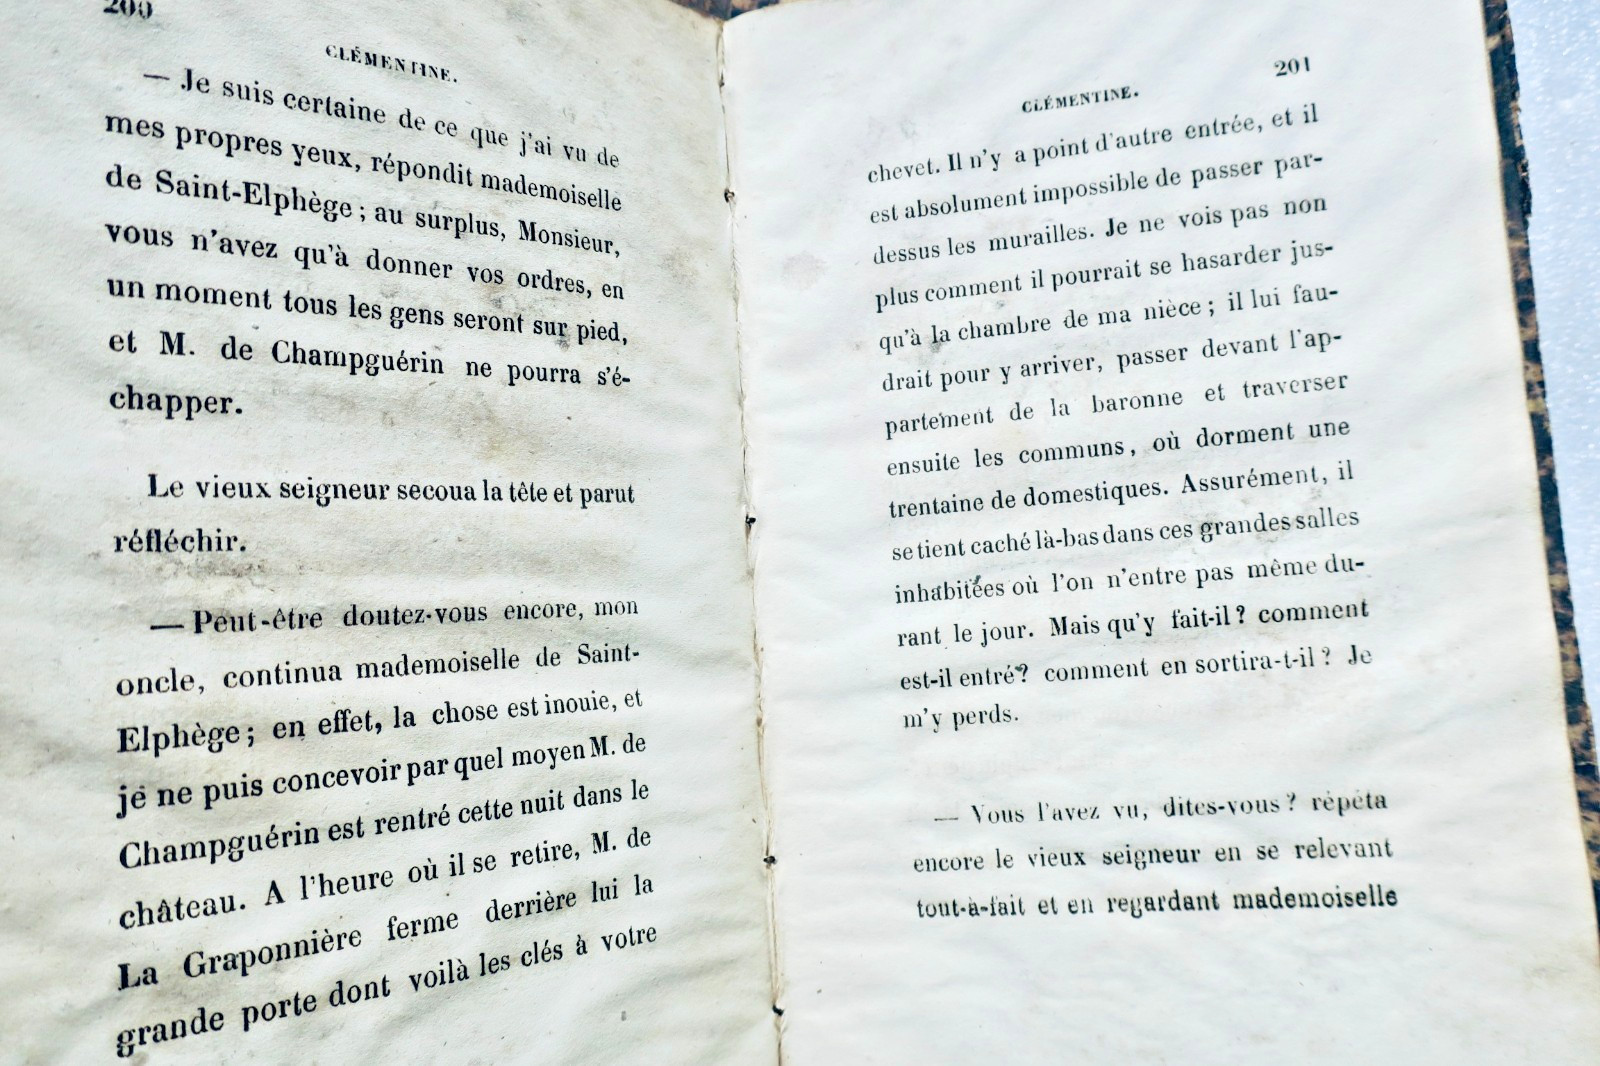 200
CLÉMENTINE.
— Je suis certaine de ce que j'ai vu de
mes propres yeux, répondit mademoiselle
de Saint-Elphège ; au surplus, Monsieur,
vous n'avez qu'à donner vos ordres, en
un moment tous les gens seront sur pied,
et M. de Champguérin ne pourra s'é-
chapper.
Le vieux seigneur secoua la tête et parut
réfléchir.
— Peut-être doutez-vous encore, mon
oncle, continua mademoiselle de Saint-
Elphège ; en effet, la chose est inouie, et
je ne puis concevoir par quel moyen M. de
Champguérin est rentré cette nuit dans le
château. A l'heure où il se retire, M. de
La Graponnière ferme derrière lui la
grande porte dont voilà les clés à votre
CLÉMENTINE.
201
chevet. Il n'y a point d'autre entrée, et il
est absolument impossible de passer par-
dessus les murailles. Je ne vois pas non
plus comment il pourrait se hasarder jus-
qu'à la chambre de ma nièce ; il lui fau-
drait pour y arriver, passer devant l'ap-
partement de la baronne et traverser
ensuite les communs, où dorment une
trentaine de domestiques. Assurément, il
se tient caché là-bas dans ces grandes salles
inhabitées où l'on n'entre pas même du-
rant le jour. Mais qu'y fait-il ? comment
est-il entré ? comment en sortira-t-il ? Je
m'y perds.
— Vous l'avez vu, dites-vous ? répéta
encore le vieux seigneur en se relevant
tout-à-fait et en regardant mademoiselle